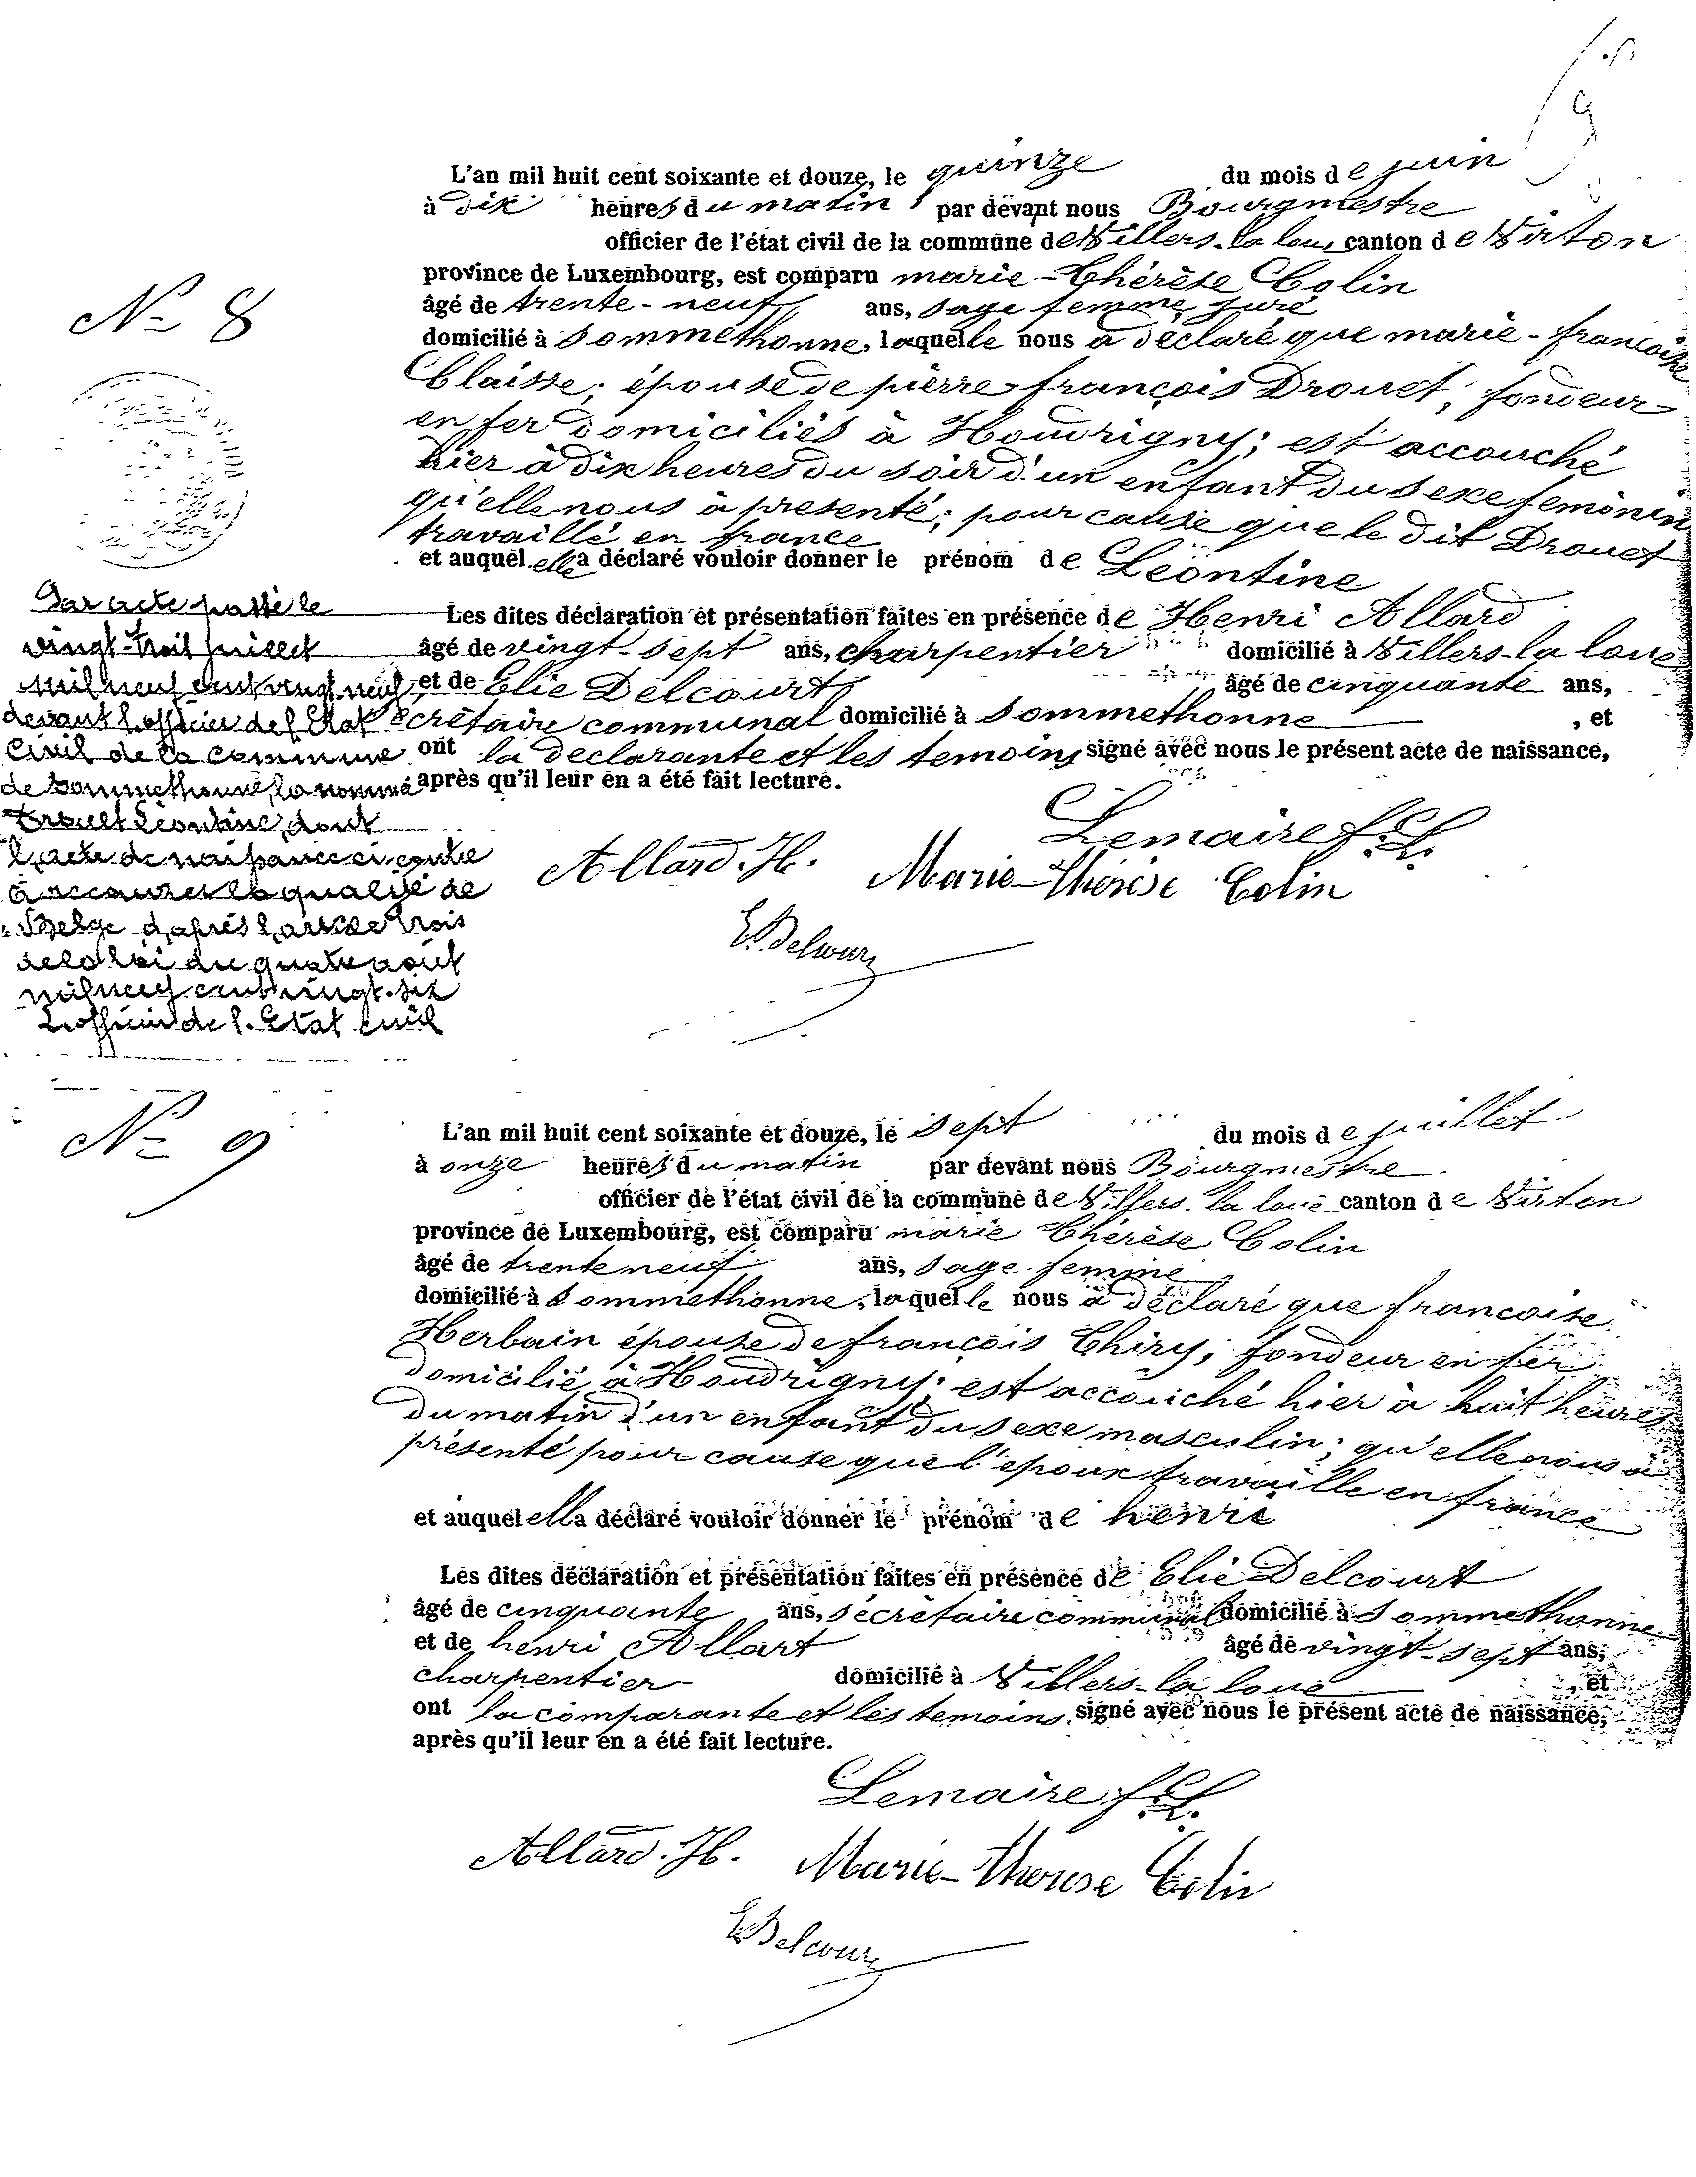 L'an mil huit cent soixante et douze, le quinze du mois de juin
à dix heures du matin par devant nous Bourgmestre
officier de l'état civil de la commune de Villers-la loue canton de Virton
N° 8
province de Luxembourg, est comparu marie-Thérèse Colin
âgé de trente-neuf ans, sage femme juré
domicilié à Sommethonne, laquelle nous a déclaré que marie-francoise
Claisse, épouse de pierre françois Drouet, fondeur
en fer domiciliés à Houdrigny; est accouché
hier à dix heures du soir d'un enfant du sexe feminin
qu'elle nous à presenté; pour cause que le dit Drouet
travaillé en france
et auquel elle a déclaré vouloir donner le prénom de Léontine
Les dites déclaration et présentation faites en présence de Henri Allard
âgé de vingt-sept ans, charpentier domicilié à Villers-la loue
et de Elie Delcourt âgé de cinquante ans,
secrétaire communal domicilié à Sommethonne , et
ont la declarante et les temoins signé avec nous le présent acte de naissance,
après qu'il leur en a été fait lecture.
Par acte passé le
vingt-trois juillet
mil neuf cent vingt-neuf,
devant l'officier de l'Etat
civil de la commune
de Sommethonne, la nommé
Drouet Léontine, dont
l'acte de naissance ci-contre
à recouvrer la qualité de
Belge d'après l'article trois
de la loi du quatre août
mil neuf cent vingt-six
L'officier de l'Etat civil
Lemaire f.L.
Allard. H. Marie-Thérèse Colin
E. Delcour
N° 9
L'an mil huit cent soixante et douze, le sept du mois de juillet
à onze heures du matin par devant nous Bourgmestre
officier de l'état civil de la commune de Villers-la loue canton de Virton
province de Luxembourg, est comparu marie Thérèse Colin
âgé de trente neuf ans, sage-femme
domicilié à Sommethonne, laquelle nous à déclaré que francoise
Herbain épouse de françois Thiry, fondeur en fer
domicilié à Houdrigny; est accouché hier à huit heures
du matin d'un enfant du sexe masculin; qu'elle nous à
présenté pour cause que l'epoux travaille en france
et auquel ella déclaré vouloir donner le prénom de henri
Les dites déclaration et présentation faites en présence de Elie Delcourt
âgé de cinquante ans, sécrétaire communal domicilié à Sommethonne
et de henri Allart âgé de vingt-sept ans,
charpentier domicilié à Villers-la loue , et
ont la comparante et les temoins signé avec nous le présent acte de naissance,
après qu'il leur en a été fait lecture.
Lemaire f.L.
Allard. H. Marie-Therese Colin
E Delcour